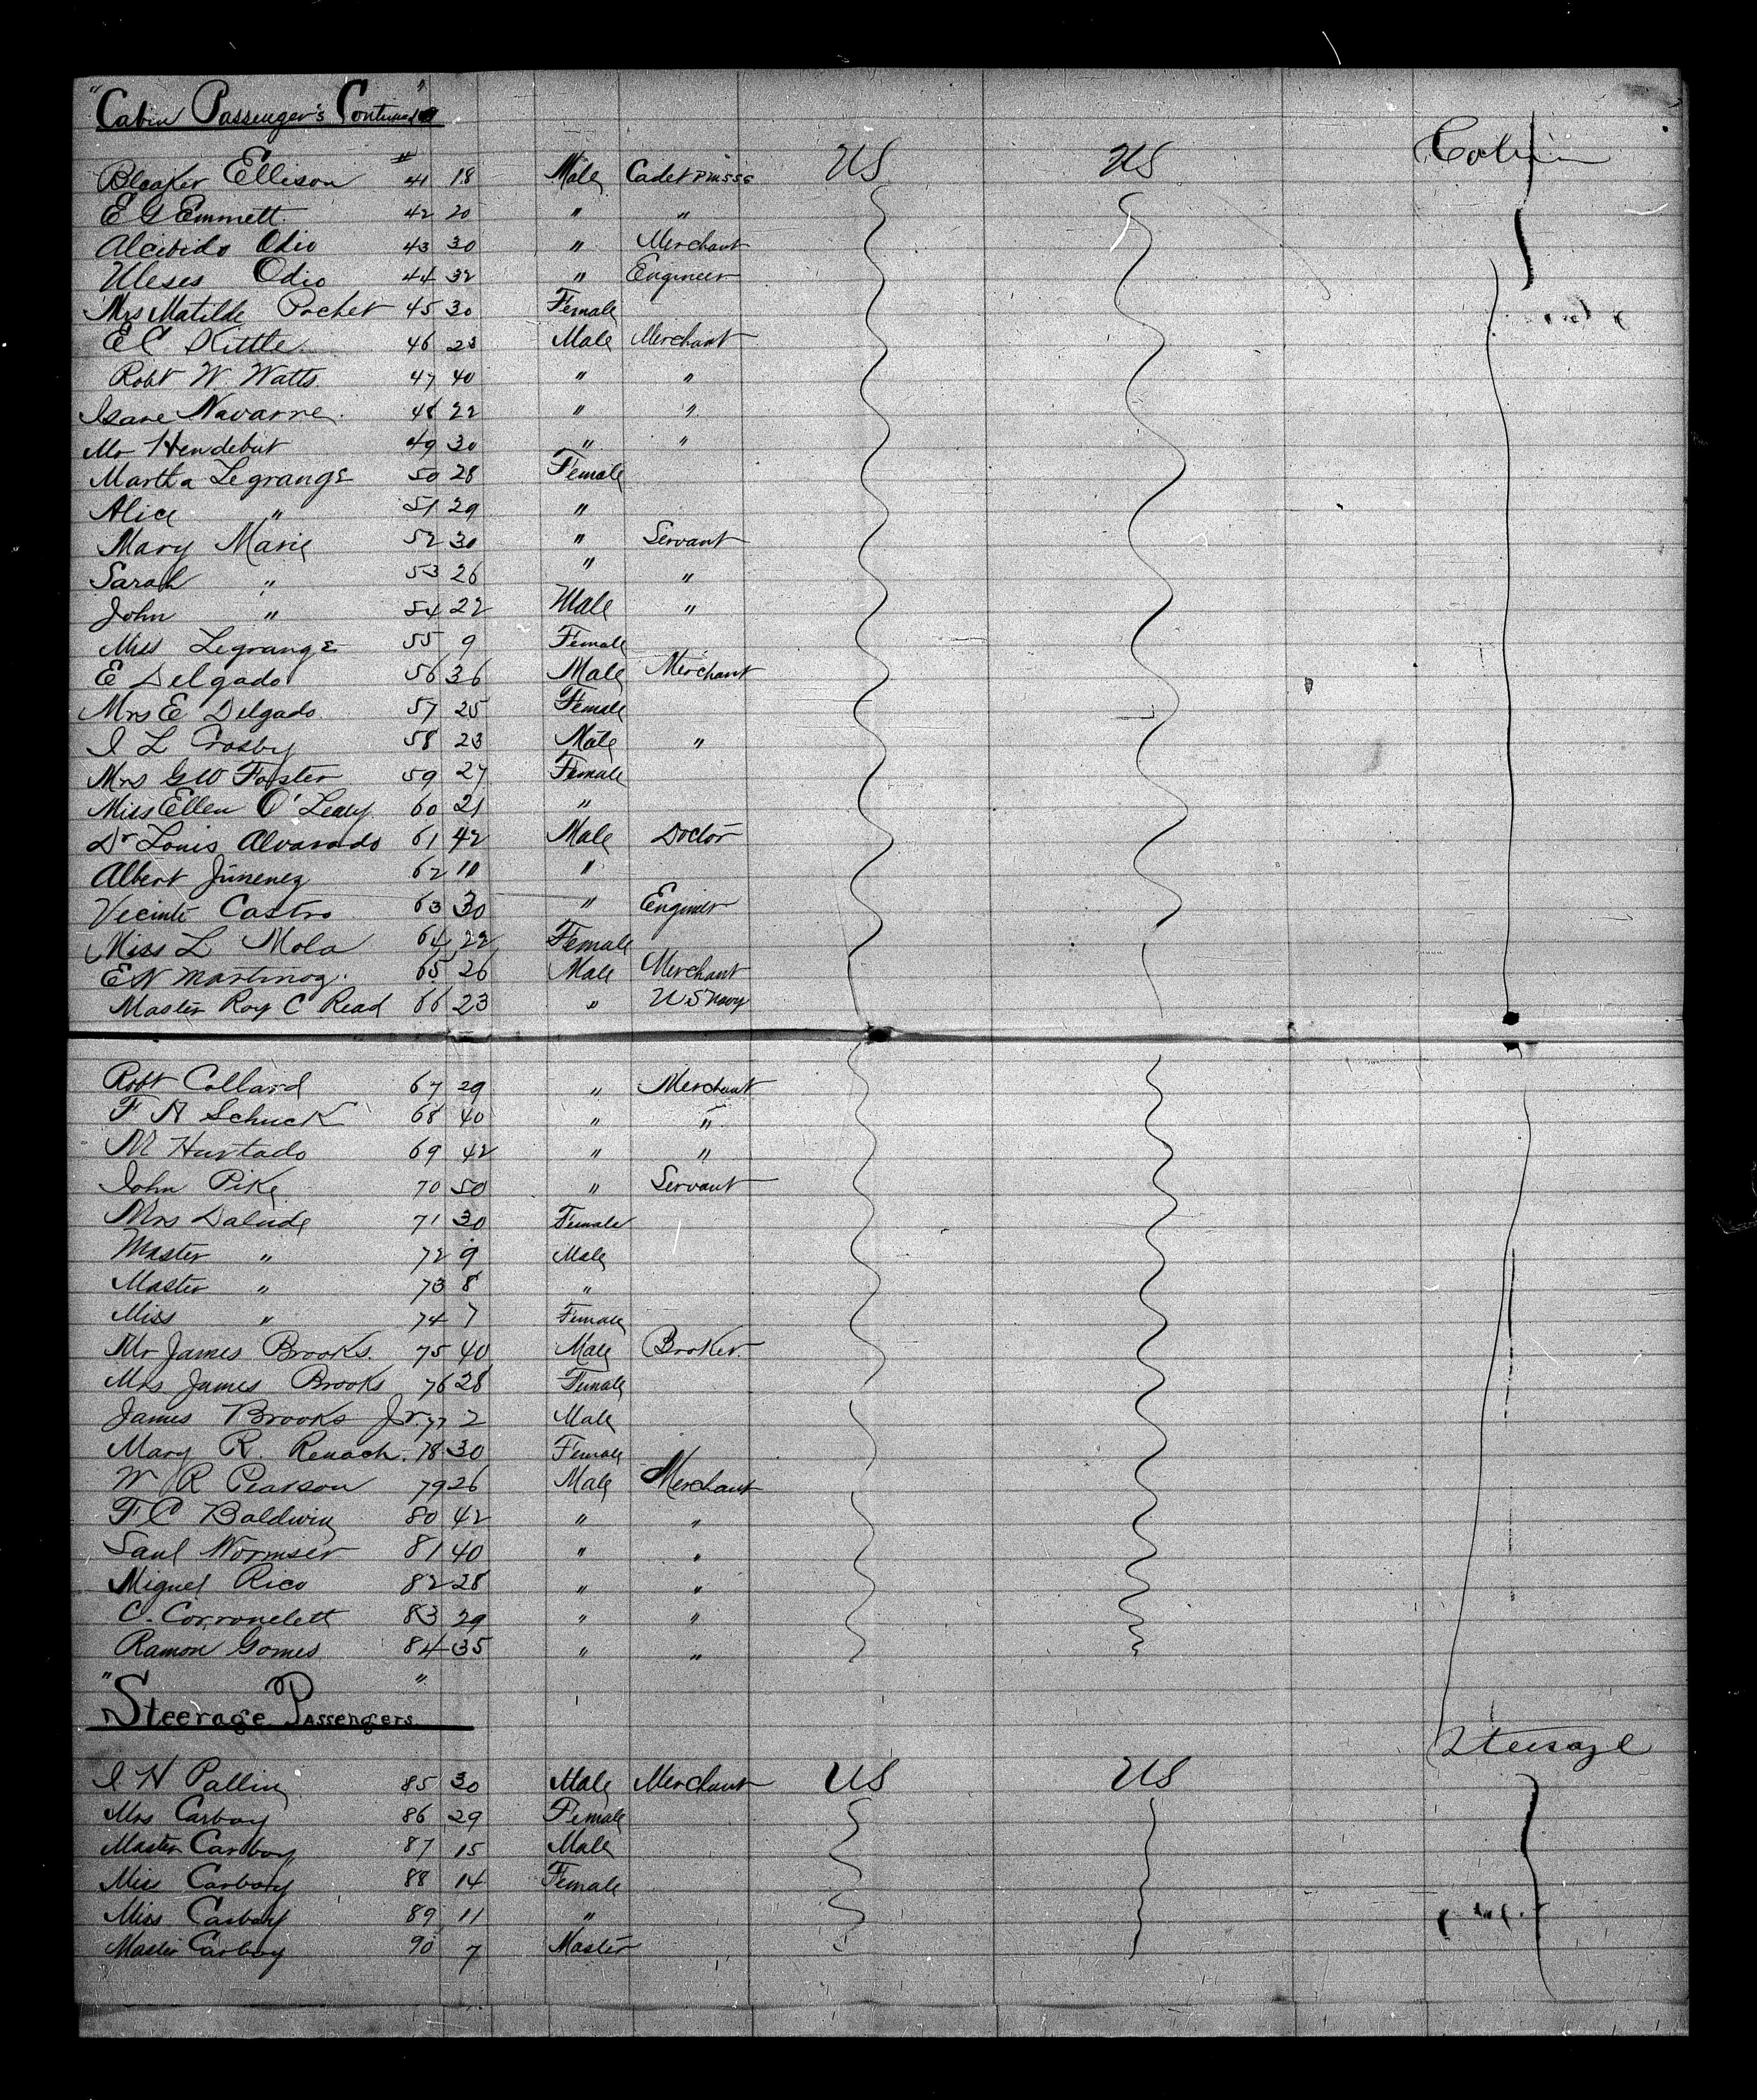 "Cabin Passenger's Continued"
# US US Cabin
Bleaker Ellison 41 18 Male Cadet PMSSC
E G Emmett 42 20 " "
Alcibido Odio 43 30 " Merchant
Uleses Odio 44 32 " Engineer
Mrs Matilde Pochet 45 30 Female
E C Kittle 46 23 Male Merchant
Robt W. Watts 47 40 " "
Isaac Navarre 48 22 " "
Mr Hendebut 49 30 " "
Martha Legrange 50 28 Female
Alice " 51 29 "
Mary Marie 52 30 " Servant
Sarah " 53 26 " "
John " 54 22 Male "
Miss Legrange 55 9 Female
E Delgado 56 36 Male Merchant
Mrs E Delgado 57 25 Female
I L Crosby 58 23 Male "
Mrs G W Foster 59 27 Female
Miss Ellen O'Leary 60 21 "
Dr Louis Alvarado 61 42 Male Doctor
Albert Jimenez 62 10 "
Vecinte Castro 63 30 " Engineer
Miss L Mola 64 22 Female
E N Martinoz 65 26 Male Merchant
Master Roy C Read 66 23 " U S Navy
Robt Collard 67 29 " Merchant
F A Schuck 68 40 " "
M Hurtado 69 42 " "
John Pike 70 50 " Servant
Mrs 71 30 Female
Master " 72 9 Male
Master " 73 8 "
Miss " 74 7 Female
Mr James Brooks. 75 40 Male Broker.
Mrs James Brooks 76 28 Female
James Brooks Jr. 77 2 Male
Mary R. Renach. 78 30 Female
W R Pearson 79 26 Male Merchant
F C Baldwin 80 42 " "
Saul Wormser 81 40 " "
Miguel Rico 82 28 " "
C. Corronelett 83 29 " "
Ramon Gomes 84 35 " "
"Steerage Passengers"
Steerage
I H Pallin 85 30 Male Merchant US US
Mrs Carboy 86 29 Female
Master Carboy 87 15 Male
Miss Carboy 88 14 Female
Miss Carboy 89 11 "
Master Carboy 90 7 Master